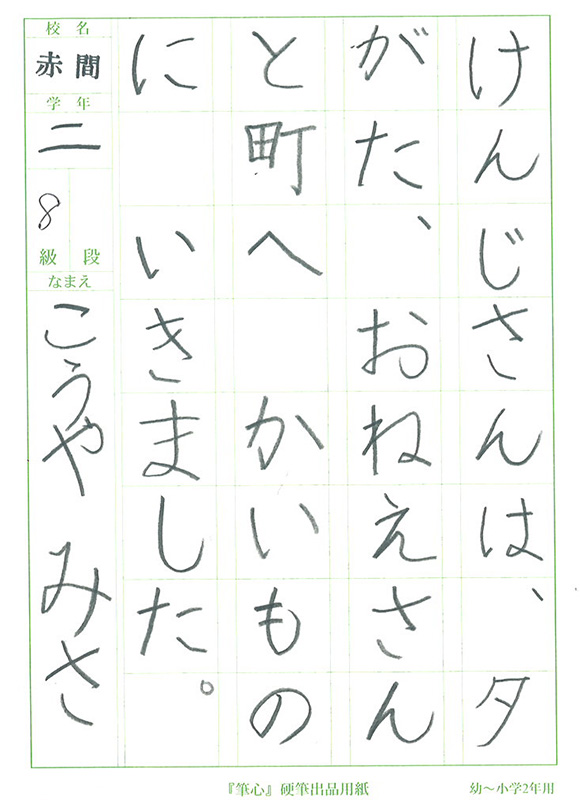 けんじさんは、夕
がた、おねえさん
と町へ かいもの
に いきました。
校名
赤間
学年
二
8
級 段
なまえ
こうや みさ
『筆心』硬筆出品用紙
幼〜小学2年用